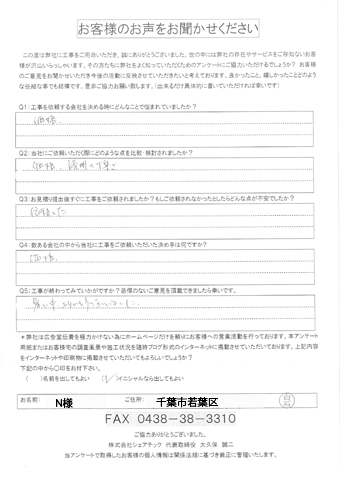 お客様のお声をお聞かせください
この度は弊社に工事をご用命いただき、誠にありがとうございました。世の中には弊社の存在やサービスをご存知ないお客
様が沢山いらっしゃいます。その方たちに弊社をよく知っていただくためのアンケートにご協力いただけるでしょうか? お客様
のご意見をお聞かせいただき今後の活動に反映させていただきたいと考えております。良かったこと、嬉しかったことどのよう
な些細な事でも結構です。是非ご協力お願い致します。(出来るだけ具体的に書いていただければ幸いです)
Q1:工事を依頼する会社を決める時にどんなことで悩まれていましたか?
価格
Q2:当社にご依頼いただく際にどのような点を比較・検討されましたか?
価格、説明の丁寧さ
Q3:お見積り提出後すぐに工事をご依頼されましたか?もしご依頼されなかったとしたらどんな点が不安でしたか?
依頼した
Q4:数ある会社の中から当社に工事をご依頼いただいた決め手は何ですか?
価格
Q5:工事が終わってみていかがですか?忌憚のないご意見を頂戴できましたら幸いです。
暑い中、ありがとうございました。
*弊社は広告宣伝費を極力かけない為にホームページだけを頼りにお客様への営業活動を行っております。本アンケート
用紙またはお客様宅の調査風景や施工状況を随時ブログ形式のインターネットに掲載させていただいております。上記内容
をインターネットや印刷物に掲載させていただいてもよろしいでしょうか?
下記の中から〇印をお付下さい。
( )名前を出してもよい (〇)イニシャルなら出してもよい
お名前: N様 千葉市若葉区
FAX 0438-38-3310
ご協力ありがとうございました。
株式会社シェアテック 代表取締役 大久保 誠二
当アンケートで取得したお客様の個人情報は関係法規に基づき厳正に管理いたします。